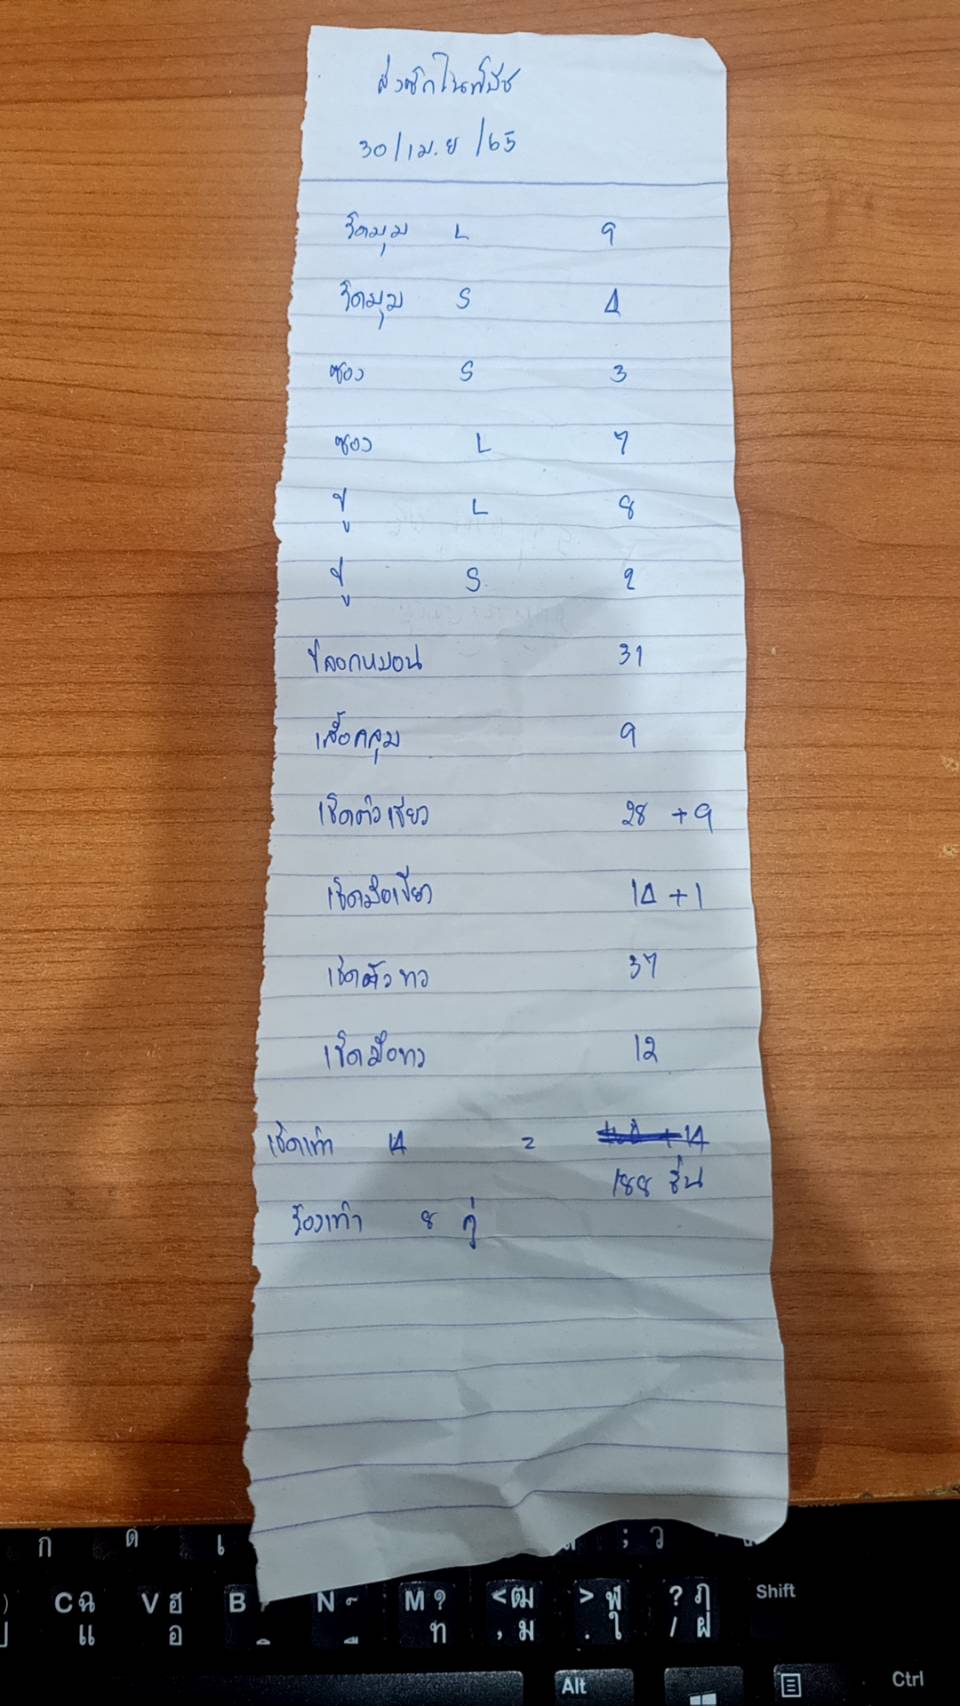 ส่งซักไนท์บีช
30/เม.ย/65
รัดมุม L 9
รัดมุม S 4
ซอง S 3
ซอง L 7
ปู L 8
ปู S 2
ปลอกหมอน 31
เสื้อคลุม 9
เช็ดตัวเขียว 28 + 9
เช็ดมือเขียว 14 + 1
เช็ดตัวขาว 37
เช็ดมือขาว 12
เช็ดเท้า 14 = 14
188 ชิ้น
รองเท้า 8 คู่
ก ด เ ; ว
C ฉ แ V ฮ อ B N M ? ท < ฒ , ม > ฬ . ใ ? ฦ / ฝ Shift
Alt Ctrl